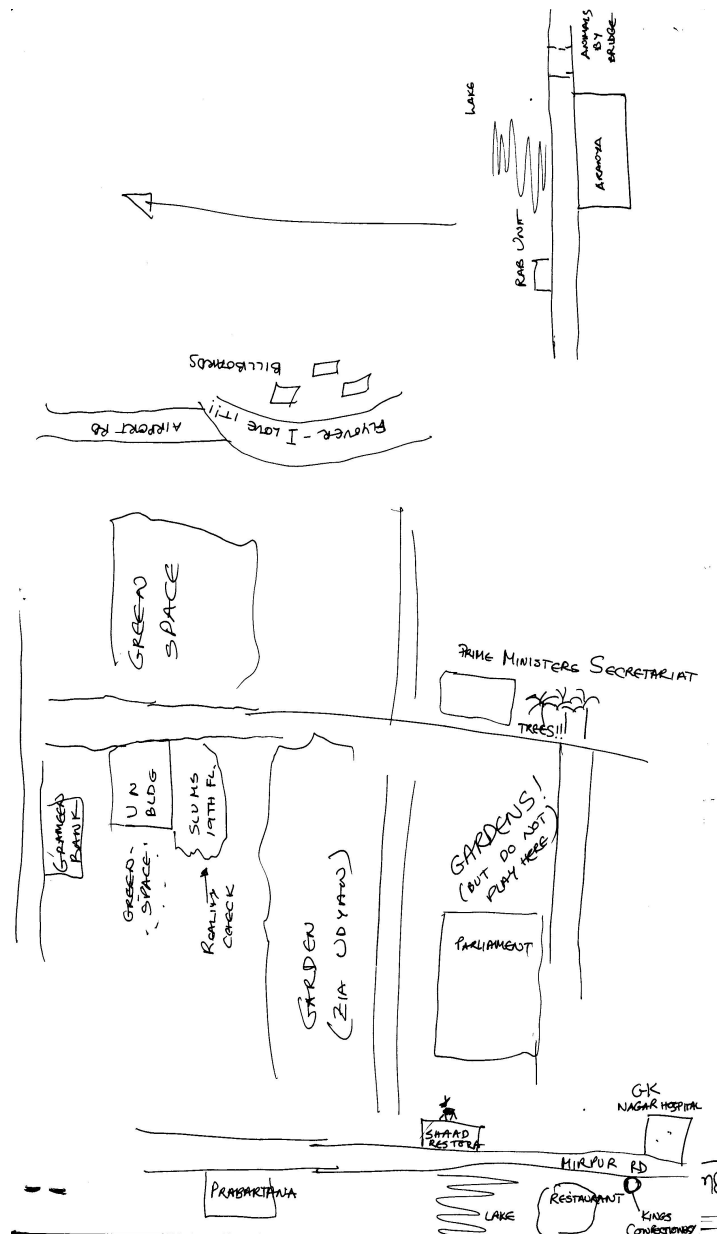 ANIMALS
BY
BRIDGE
LAKE
ARANYA
RAB UNIT
BILLBOARDS
FLYOVER - I LOVE IT!!
AIRPORT RD
GREEN
SPACE
PRIME MINISTERS SECRETARIAT
TREES!!!
GRAMEEN
BANK
UN
BLDG
SLUMS
19TH FL.
GREEN
SPACE!
REALITY
CHECK
GARDEN
(ZIA UDYAN)
GARDENS!
(BUT DO NOT
PLAY HERE)
PARLIAMENT
GK
NAGAR HOSPITAL
SHAAD
RESTORA
MIRPUR RD
PRABARTANA
LAKE
RESTAURANT
KINGS
CONFECTIONERY